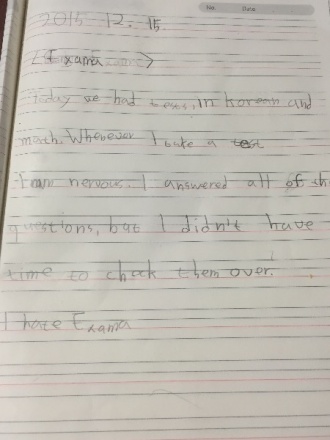 No.
Date
2015. 12. 15.
<Exama>
Today we had tests, in Korean and
math. Whenever I take a test
I am nervous. I answered all of the
questions, but I didn't have
time to check them over.
I hate Exama